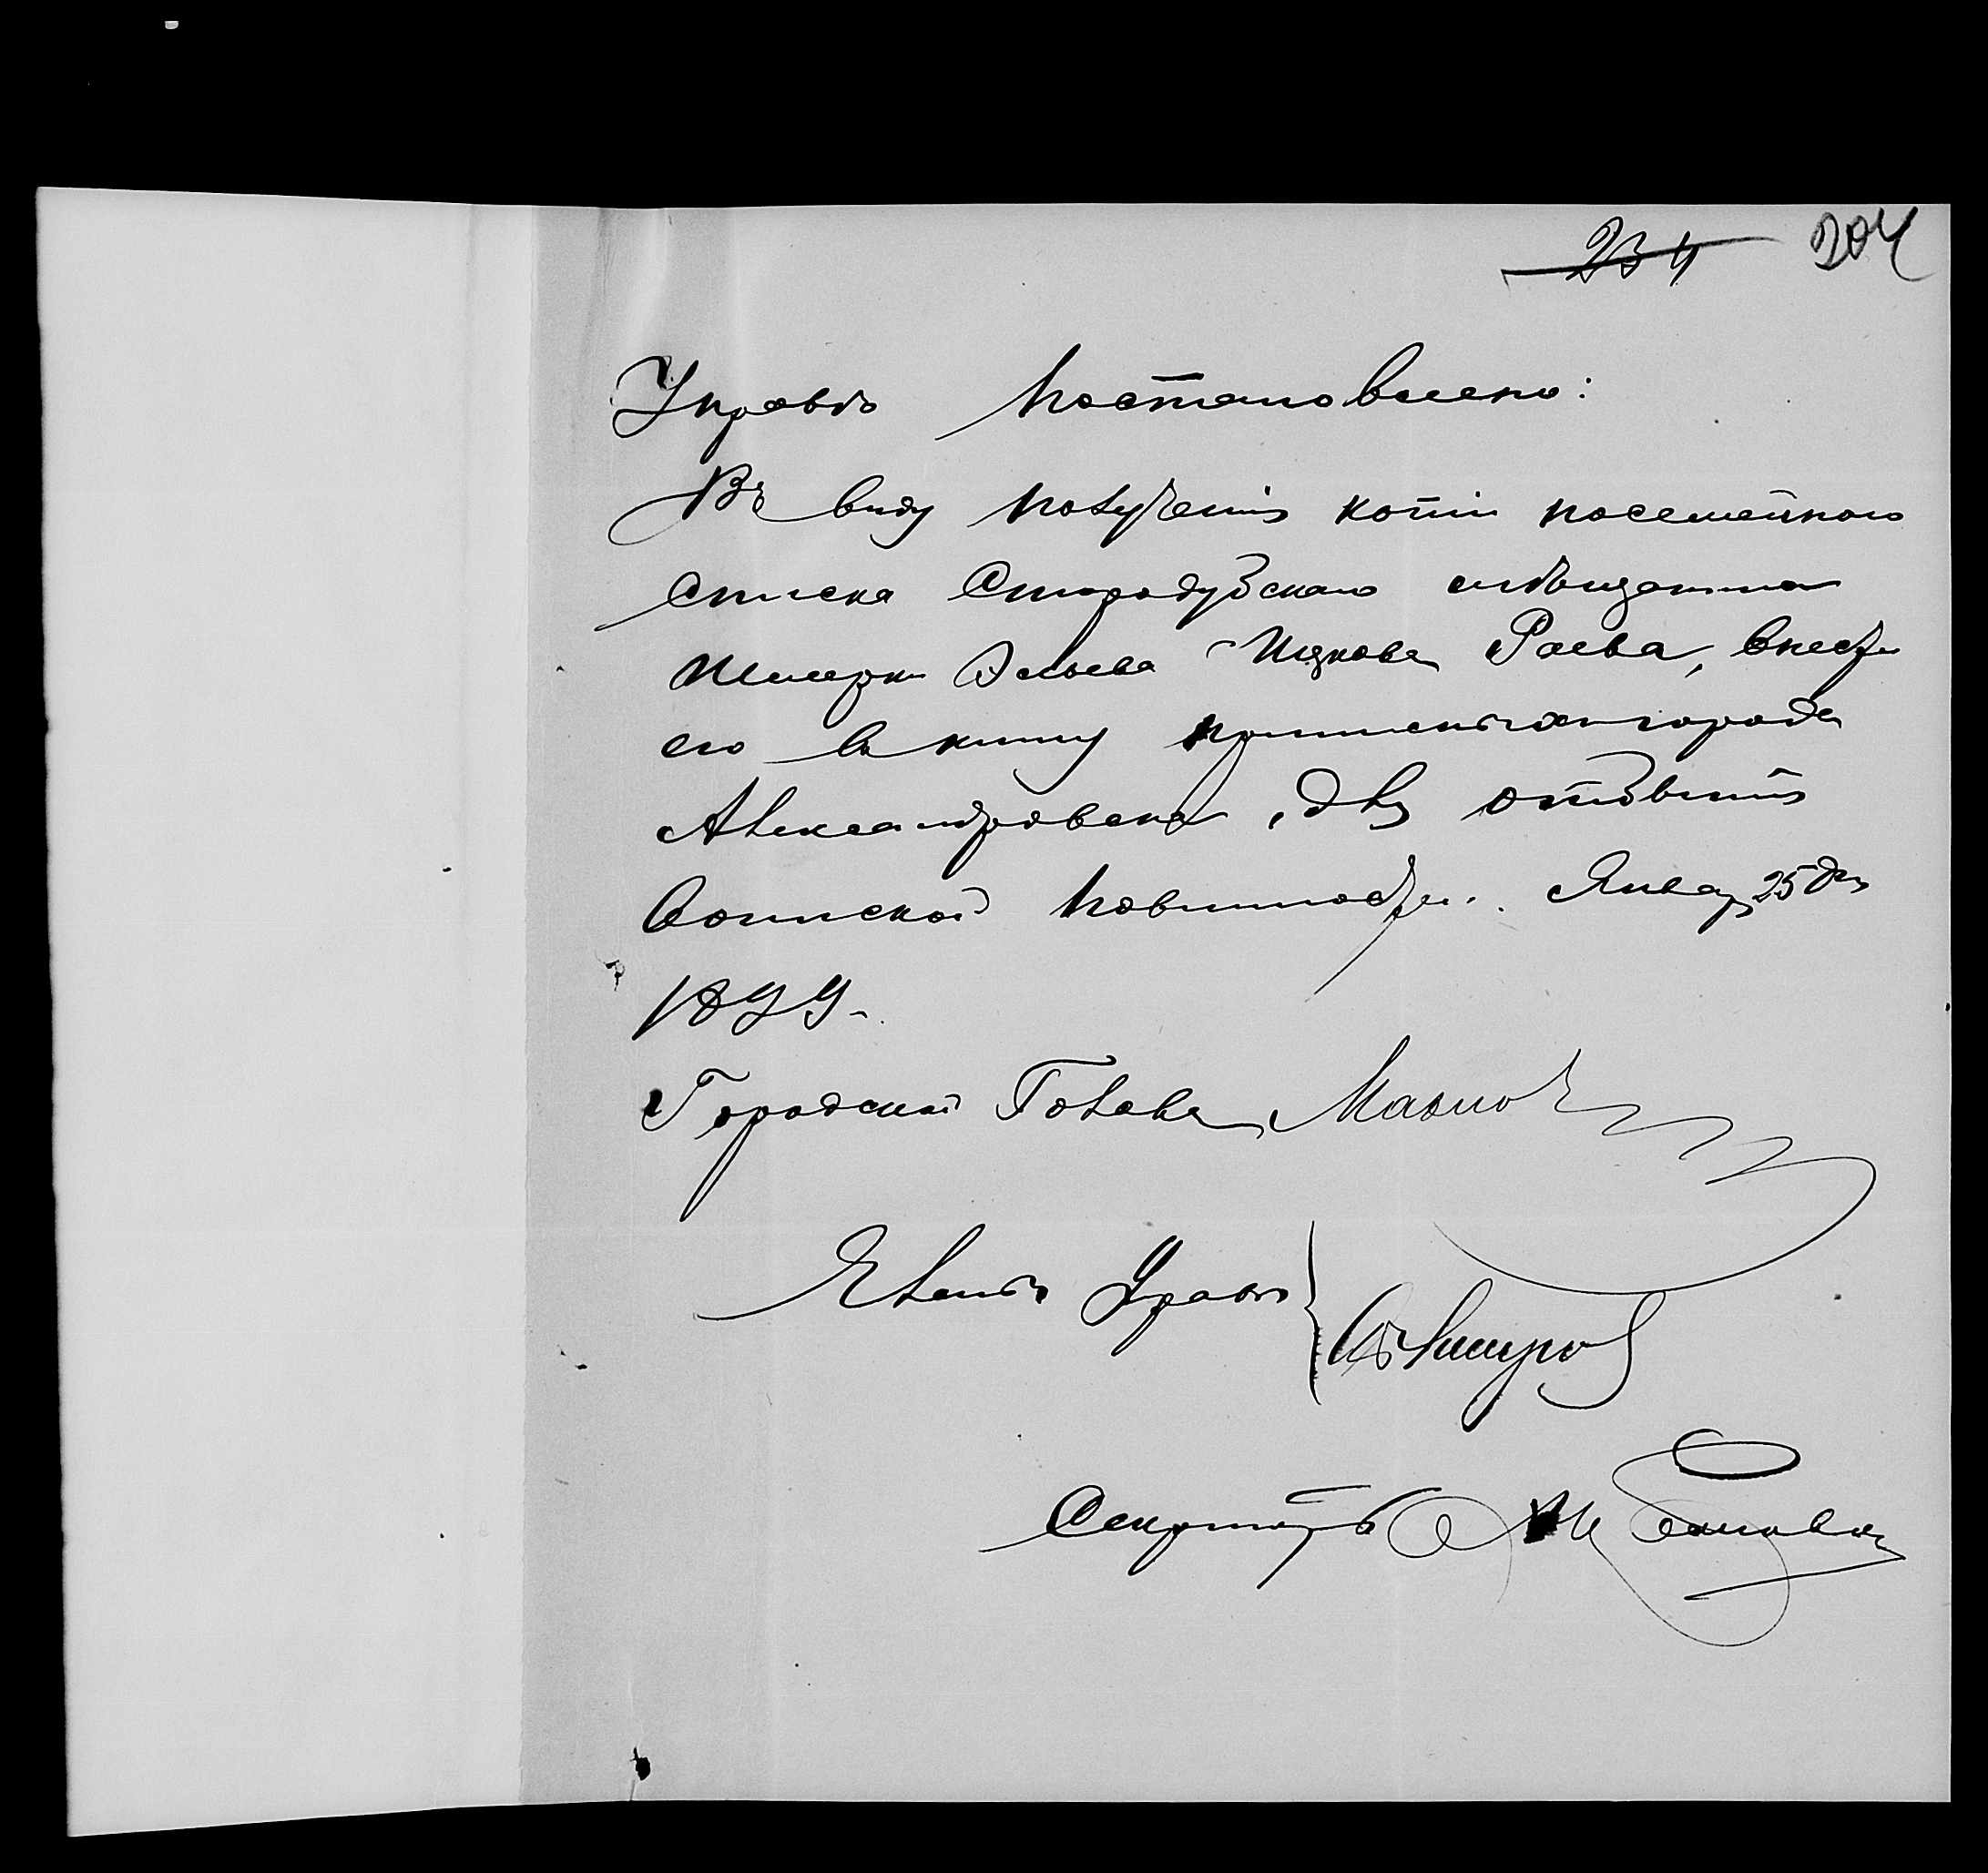 234 204
Управѣ постановлено:
Въ виду полученія копіи посемейнаго
списка Стародубскаго мѣщанина
Шмерки Эльева Ицкова Раева, внести
его въ книгу приписныхъ города
Александровска, для отбытія
воинской повинности. Январ 25 дня
1899.
Городской Голова
Члены Управы
Секретарь